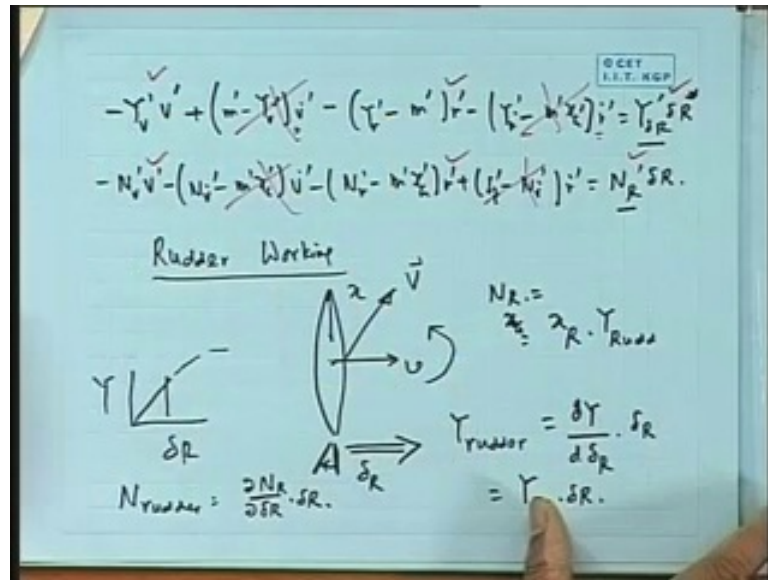 © CET
I.I.T. KGP
-Y_v' v' + (m' - Y_v̇') v̇' - (Y_r' - m') r' - (Y_ṙ' - m' x_G') ṙ' = Y_δR' δR'
-N_v' v' - (N_v̇' - m' x_G') v̇' - (N_r' - m' x_G') r' + (I_z' - N_ṙ') ṙ' = N_R' δR.
Rudder Working
x V⃗
N_R. =
x_R . Y_Rudd
υ
Y
δR
δ_R
Y_rudder = δY/dδ_R . δ_R
N_rudder = ∂N_R/∂δR . δR.
= Y . δR.